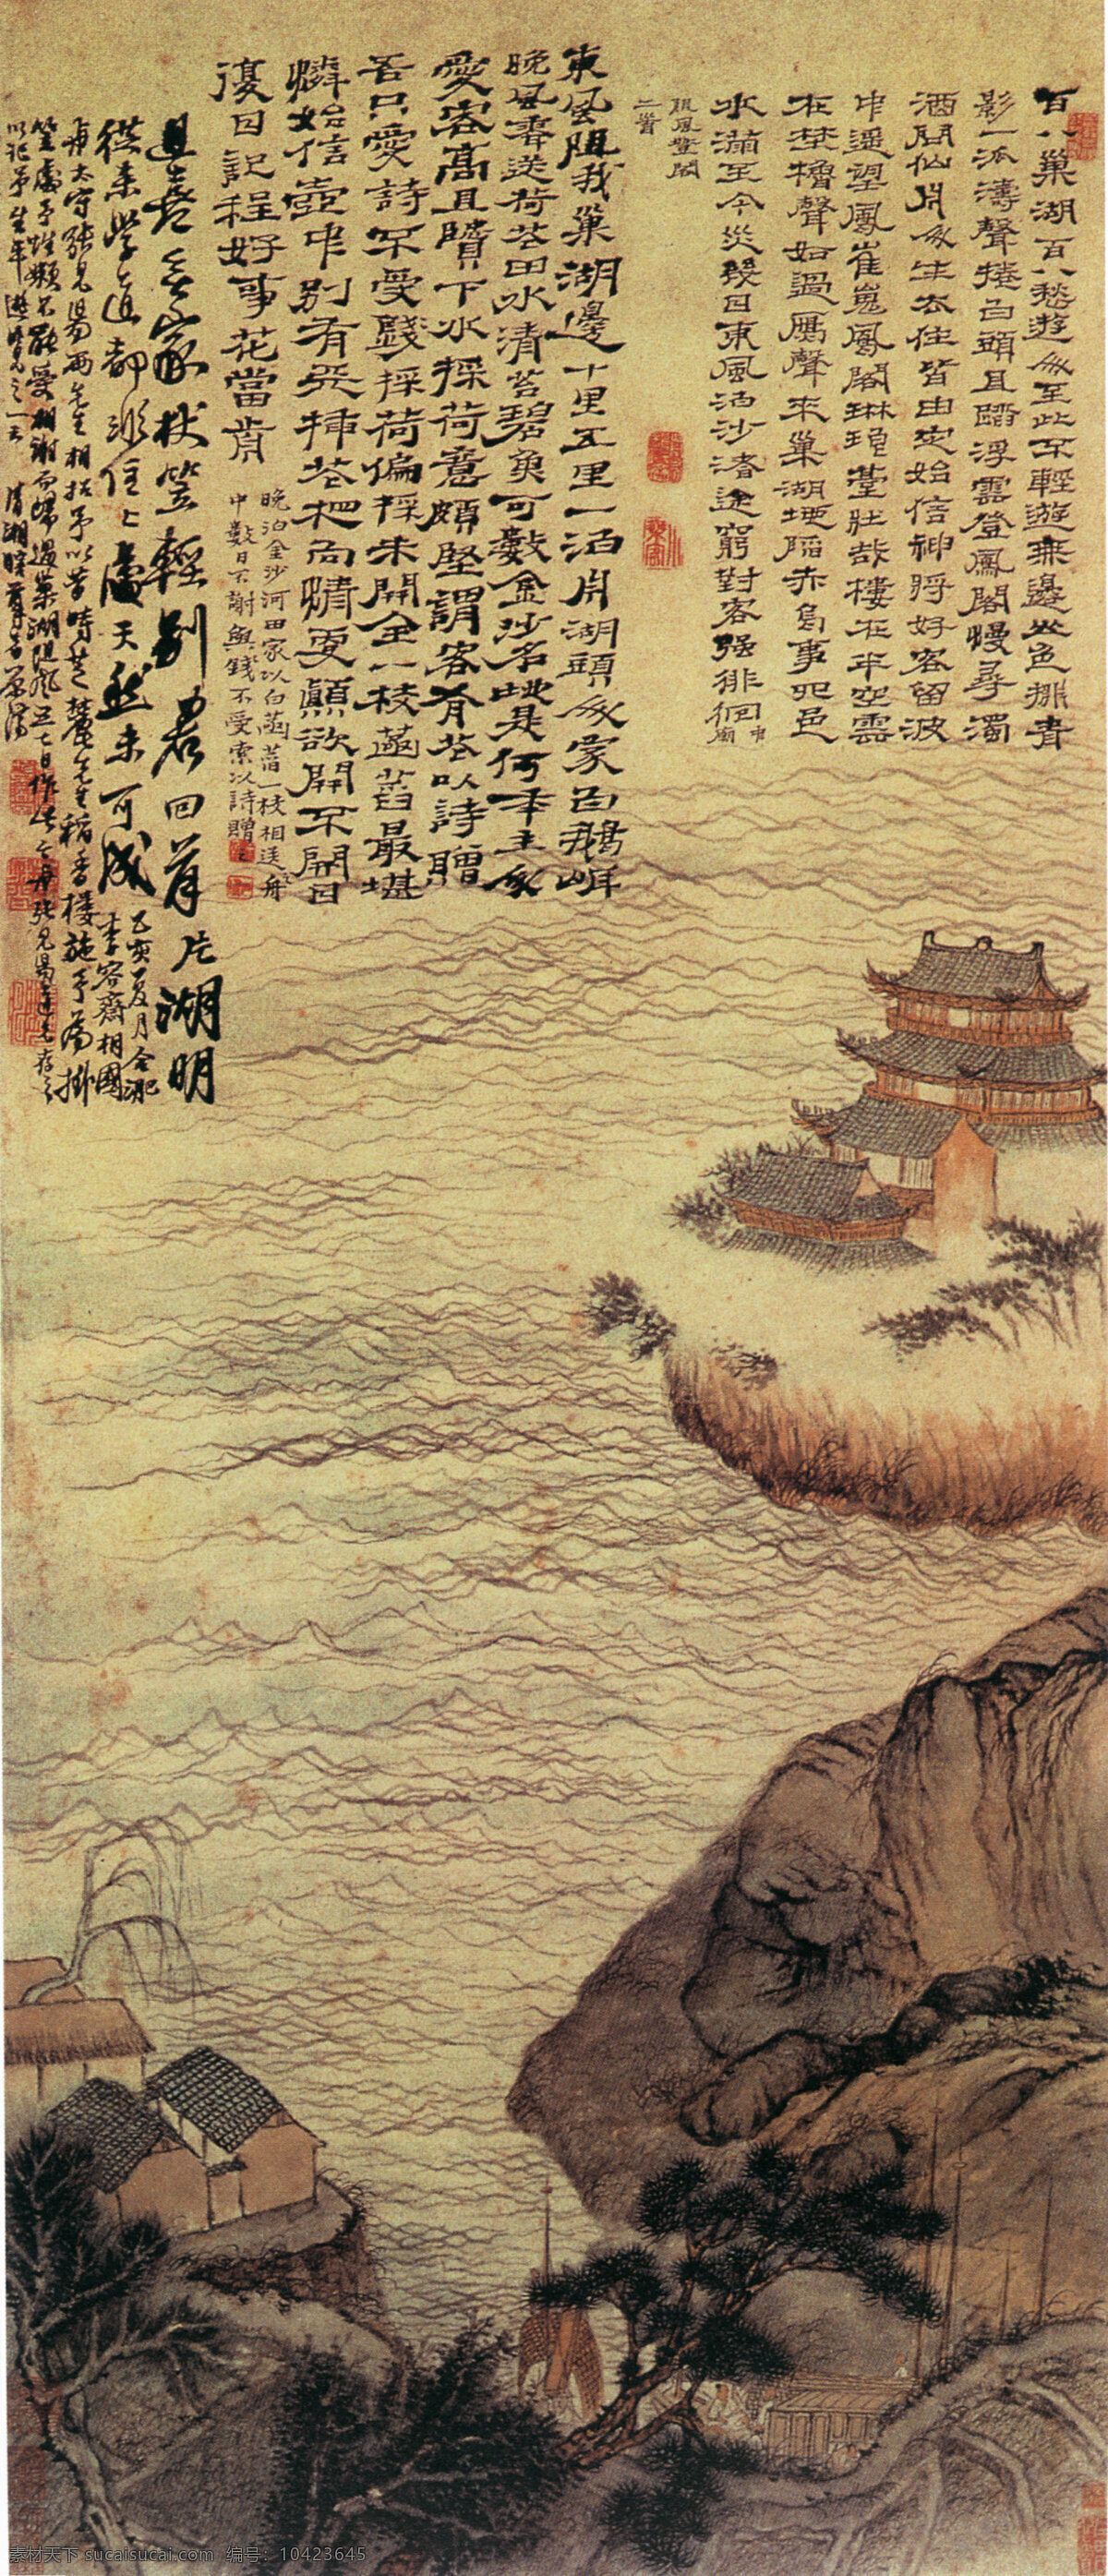 百八巢湖百八愁遊人至此不輕遊無邊山色挪青
影一派濤聲捲白頭且蹈浮雲登鳳閣慢尋濁
酒問仙舟人生去住皆由定始信神將好客留波
中遥望鳳崔嵬鳳閣琳琅臺壯哉樓在半空雲
在野櫓聲如過鴈聲來巢湖地陷赤烏事四邑
水滿至今災幾日東風泊沙渚途窮對客强徘徊中廟
阻風登閣
二首
東風阻我巢湖邊十里五里一泊舟湖頭人家白鵝岸
晚風香送荷花田水清苔碧魚可數金沙名地是何年主人
愛客高且賢下水採荷意頗堅謂客有花以詩贈
吾只愛詩不愛錢採荷偏採未開全一枝菡萏最堪
憐始信壺中別有天插花把向晴更顛欲開不開日
復日記程好事花當肯
晚泊金沙河田家以白菡萏一枝相送舟
中數日不謝與錢不受索以詩贈之
且喜無家杖笠輕別君回首片湖明
從來學道都非住住處天然未可成
乙亥夏月合淝
李容齋相國
與太守張見陽兩先生相招予以昔時芝麓先生稻香樓施予為掛
笠處予性懶不敢受相謝而歸過巢湖阻風五七日作此
以記予生平遊覽之一云
清湘瞎尊者原濟
素材天下 sucaisucai.com 编号：10423645